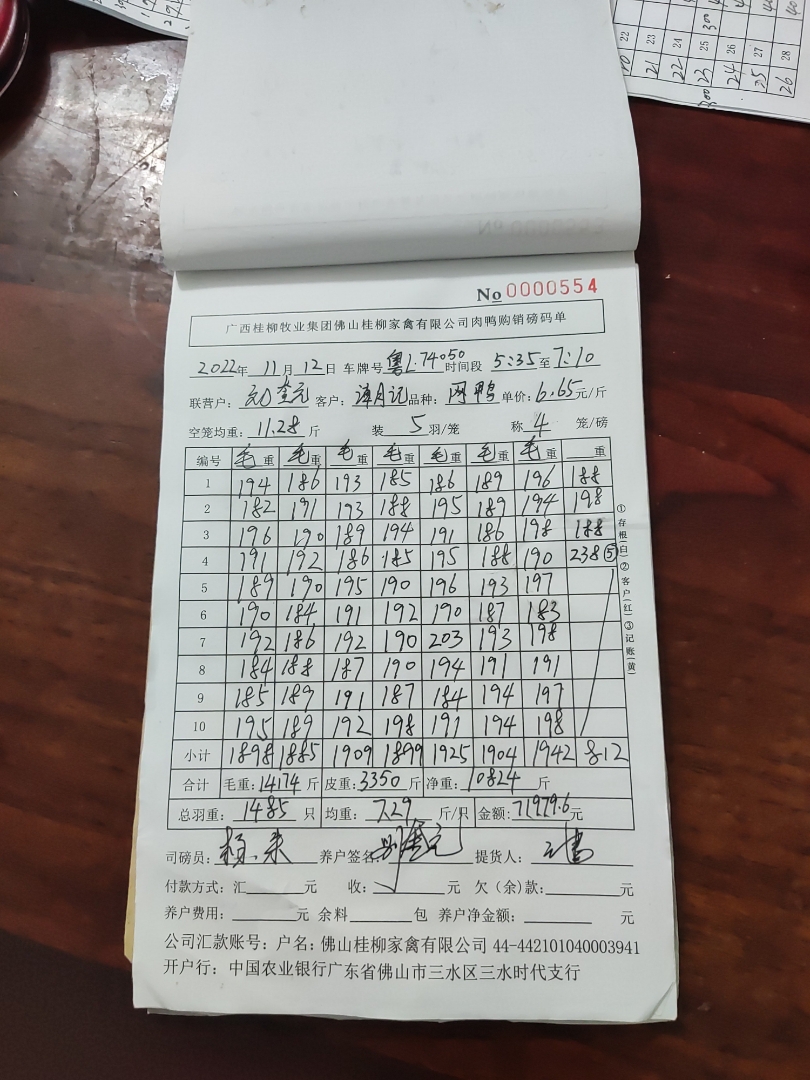 22 23 24 25 26 27 28
21 22 23 24 25 26
No 0000554
广西桂柳牧业集团佛山桂柳家禽有限公司肉鸭购销磅码单
2022年 11月 12日 车牌号 粤L:74050 时间段 5:35至7:10
联营户: 客户: 品种: 鸭 单价: 6.65元/斤
空笼均重: 11.28斤 装 5 羽/笼 称 4 笼/磅
编号 毛重 毛重 毛重 毛重 毛重 毛重 毛重 重
1 194 186 193 185 186 189 196 188
2 182 191 193 188 195 189 194 198
3 196 190 189 194 191 186 198 188
4 191 192 186 185 195 188 190 238⑤
5 189 190 195 190 196 193 197
6 190 184 191 192 190 187 183
7 192 186 192 190 203 193 198
8 184 188 187 190 194 191 191
9 185 189 191 187 184 194 197
10 195 189 192 198 191 194 198
小计 1898 1885 1909 1899 1925 1904 1942 812
合计 毛重: 14174斤 皮重: 3350斤 净重: 10824斤
总羽重: 1485只 均重: 7.29斤/只 金额: 71979.6元
司磅员: 养户签名 提货人:
付款方式: 汇 元 收: 元 欠(余)款: 元
养户费用: 元 余料 包 养户净金额: 元
公司汇款账号: 户名: 佛山桂柳家禽有限公司 44-442101040003941
开户行: 中国农业银行广东省佛山市三水区三水时代支行
①存根(白)②客户(红)③记账(黄)